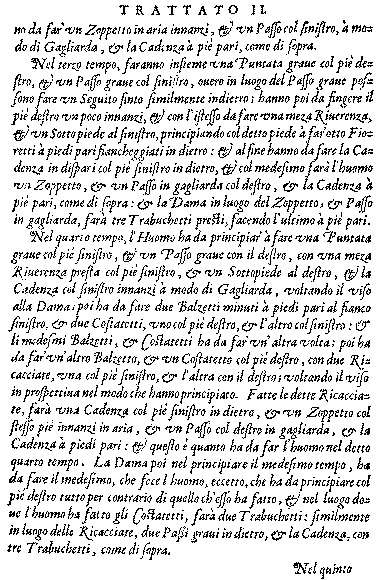 TRATTATO II.
no da far' vn Zoppetto in aria innanzi, & vn Passo col sinistro, à mo-
do di Gagliarda, & la Cadenza à piè pari, come di sopra.
Nel terzo tempo, faranno insieme vna Puntata graue col piè de-
stro, & vn Passo graue col sinistro, ouero in luogo del Passo graue pos-
sono fare vn Seguito finto similmente indietro: hanno poi da fingere il
piè destro vn poco innanzi, & con l'istesso da fare vna meza Riuerenza,
& vn Sottopiede al sinistro, principiando col detto piede à far' otto Fio-
retti à piedi pari fiancheggiati in dietro: & al fine hanno da fare la Ca-
denza in dispari col piè sinistro in dietro, & col medesimo farà l'huomo
vn Zoppetto, & vn Passo in gagliarda col destro, & la Cadenza à
piè pari, come di sopra: & la Dama in luogo del Zoppetto, & Passo
in gagliarda, farà tre Trabuchetti presti, facendo l'ultimo à piè pari.
Nel quarto tempo, l'Huomo ha da principiar' à fare vna Puntata
graue col piè sinistro, & vn Passo graue con il destro, con vna meza
Riuerenza presta col piè sinistro, & vn Sottopiede al destro, & la
Cadenza col sinistro innanzi à modo di Gagliarda, voltando il viso
alla Dama: poi ha da fare due Balzetti minuti à piedi pari al fianco
sinistro, & due Costatetti, vno col piè destro, & l'altro col sinistro: &
li medesmi Balzetti, & Costatetti ha da far' vn' altra volta: poi ha
da far' vn' altro Balzetto, & vn Costatetto col piè destro, con due Ri-
cacciate, vna col piè sinistro, & l'altra con il destro; voltando il viso
in prospettiua nel modo che hanno principiato. Fatte le dette Ricaccia-
te, farà vna Cadenza col piè sinistro in dietro, & vn Zoppetto col
stesso piè innanzi in aria, & vn Passo col destro in gagliarda, & la
Cadenza à piedi pari: & questo è quanto ha da far l'huomo nel detto
quarto tempo. La Dama poi nel principiare il medesimo tempo, ha
da fare il medesimo, che fece l'huomo, eccetto, che ha da principiare col
piè destro tutto per contrario di quello ch'esso ha fatto, & nel luogo do-
ue l'huomo ha fatto gli Costatetti, farà due Trabuchetti: similmente
in luogo delle Ricacciate, due Passi graui in dietro, & la Cadenza, con
tre Trabuchetti, come di sopra.
Nel quinto